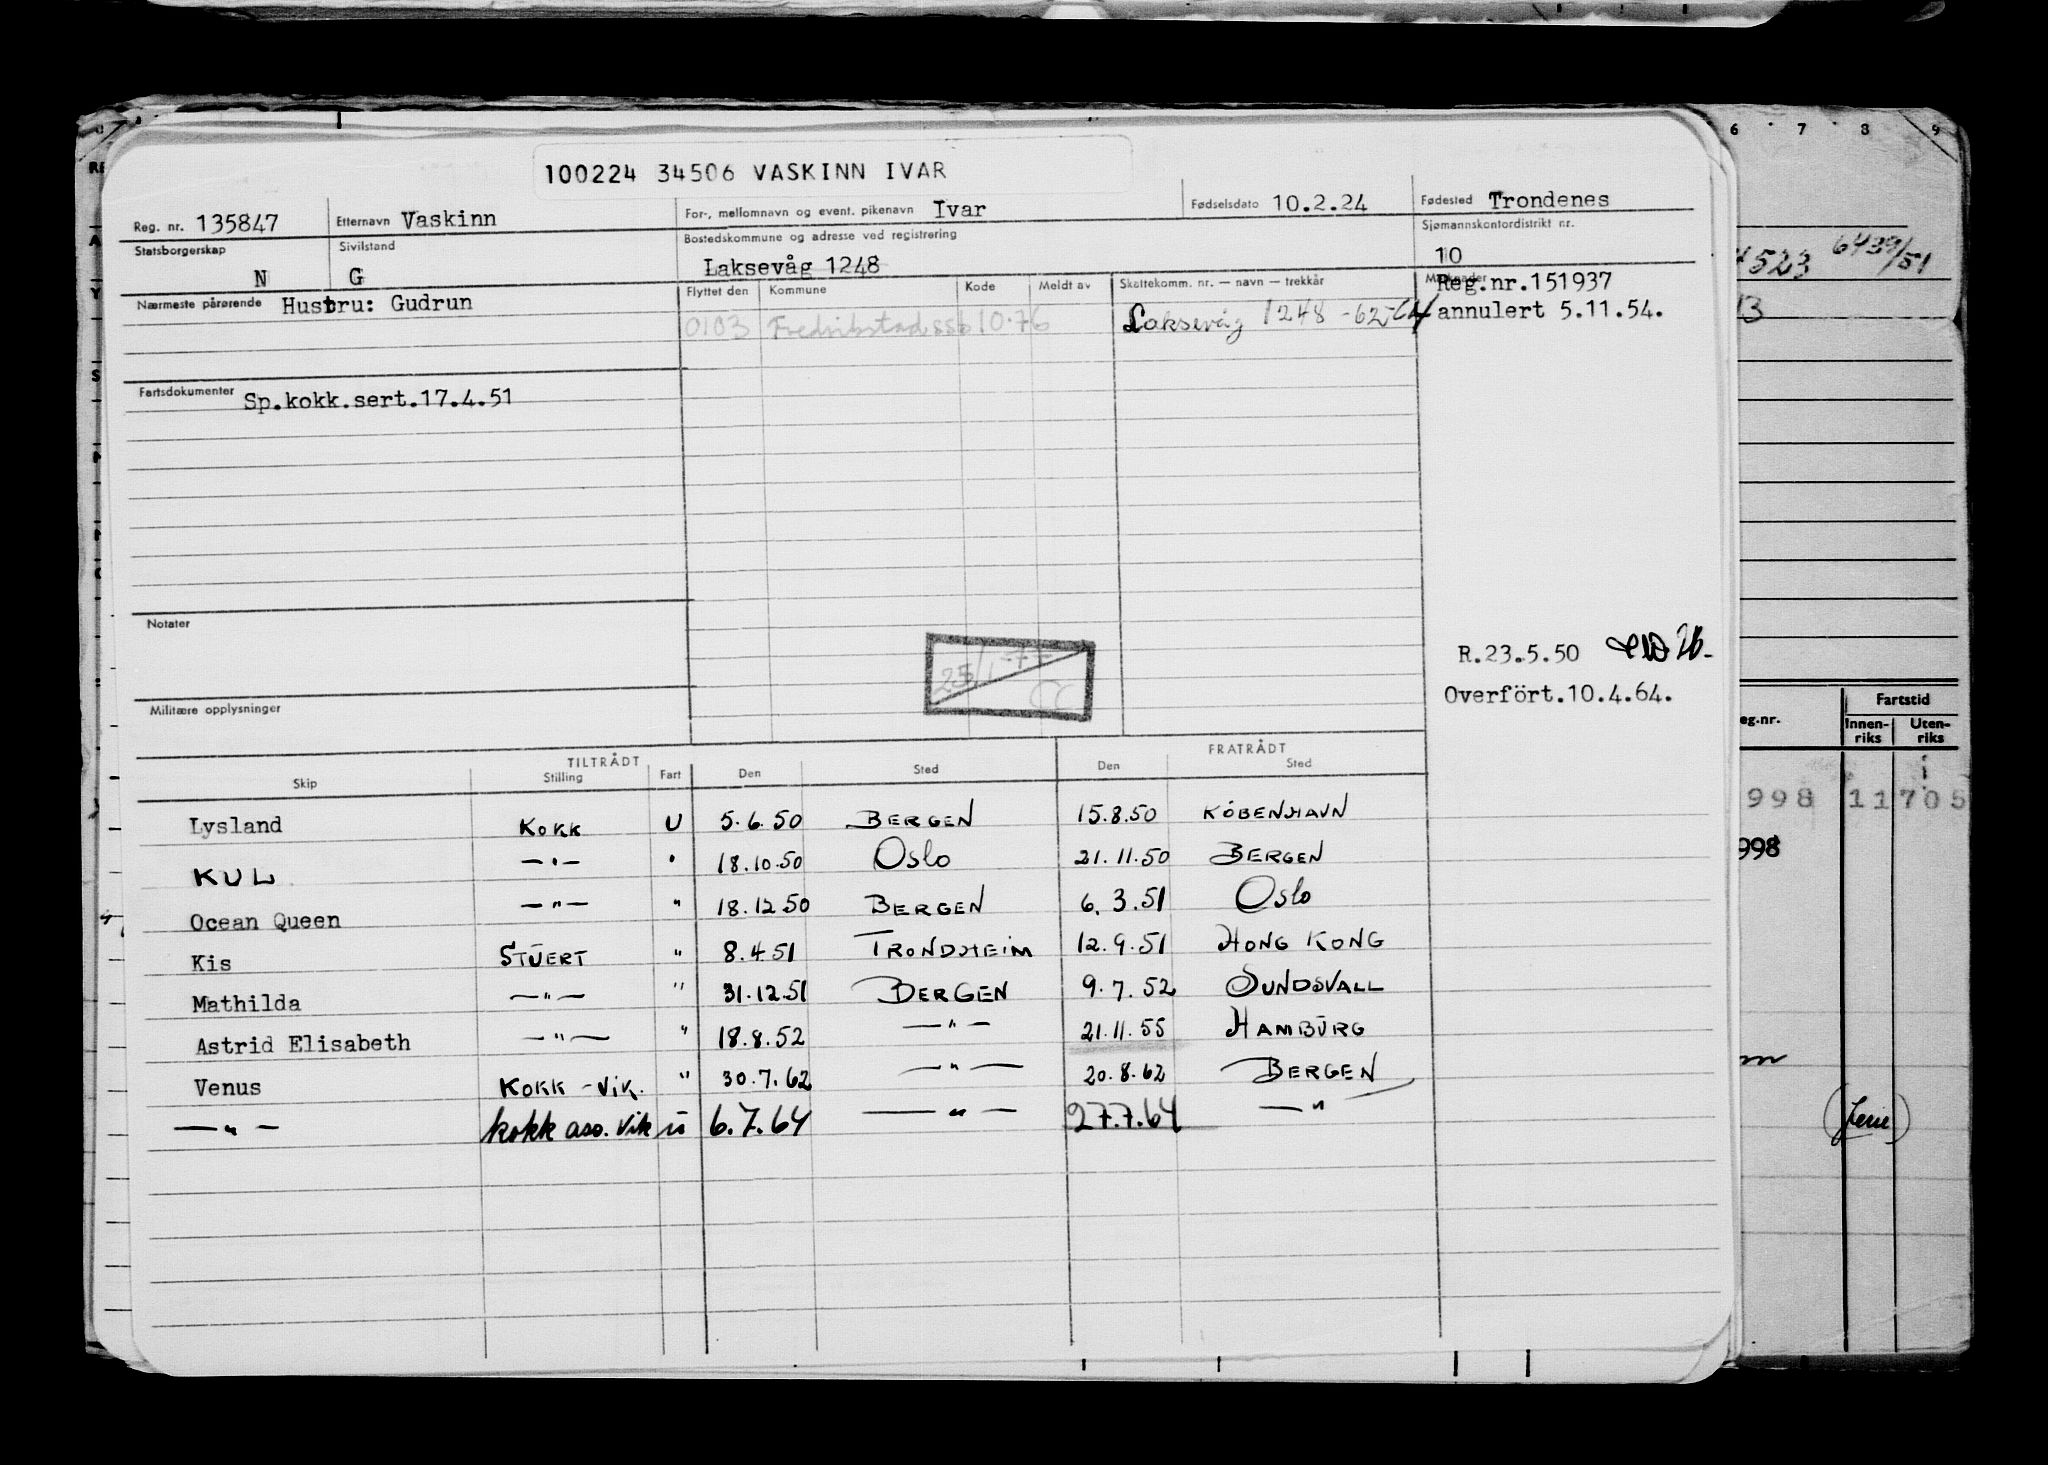 100224 34506 VASKINN IVAR
Reg. nr. 135847 Etternavn Vaskinn For-, mellomnavn og event. pikenavn Ivar Fødselsdato 10.2.24 Fødested Trondenes
Statsborgerskap N Sivilstand G Bostedskommune og adresse ved registrering Laksevåg 1248 Sjømannskontordistrikt nr. 10
Nærmeste pårørende Hustru: Gudrun Flyttet den Kommune Kode Meldt av Skattekomm. nr. — navn — trekkår Merknader Reg.nr.151937
0103 Fredrikstad ssb 10.76 Laksevåg 1248 -62-64 annulert 5.11.54.
Fartsdokumenter Sp.kokk.sert.17.4.51
Notater
25/1-77
R.23.5.50
Overfört.10.4.64.
Militære opplysninger
TILTRÅDT FRATRÅDT
Skip Stilling Fart Den Sted Den Sted
Lysland KOKK U 5.6.50 BERGEN 15.8.50 KÖBENHAVN
KUL —"— " 18.10.50 OSLO 21.11.50 BERGEN
Ocean Queen —"— " 18.12.50 BERGEN 6.3.51 OSLO
Kis STUERT " 8.4.51 TRONDHEIM 12.9.51 HONG KONG
Mathilda —"— " 31.12.51 BERGEN 9.7.52 SUNDSVALL
Astrid Elisabeth —"— " 18.8.52 —"— 21.11.55 HAMBURG
Venus KOKK -VIK. " 30.7.62 —"— 20.8.62 BERGEN
—"— kokk ass. vik u 6.7.64 —"— 27.7.64 —"—
6 7 8 9
4523 6439/51
13
eg.nr. Fartstid
Innen-riks Uten-riks
998 11705
998
(ferie)